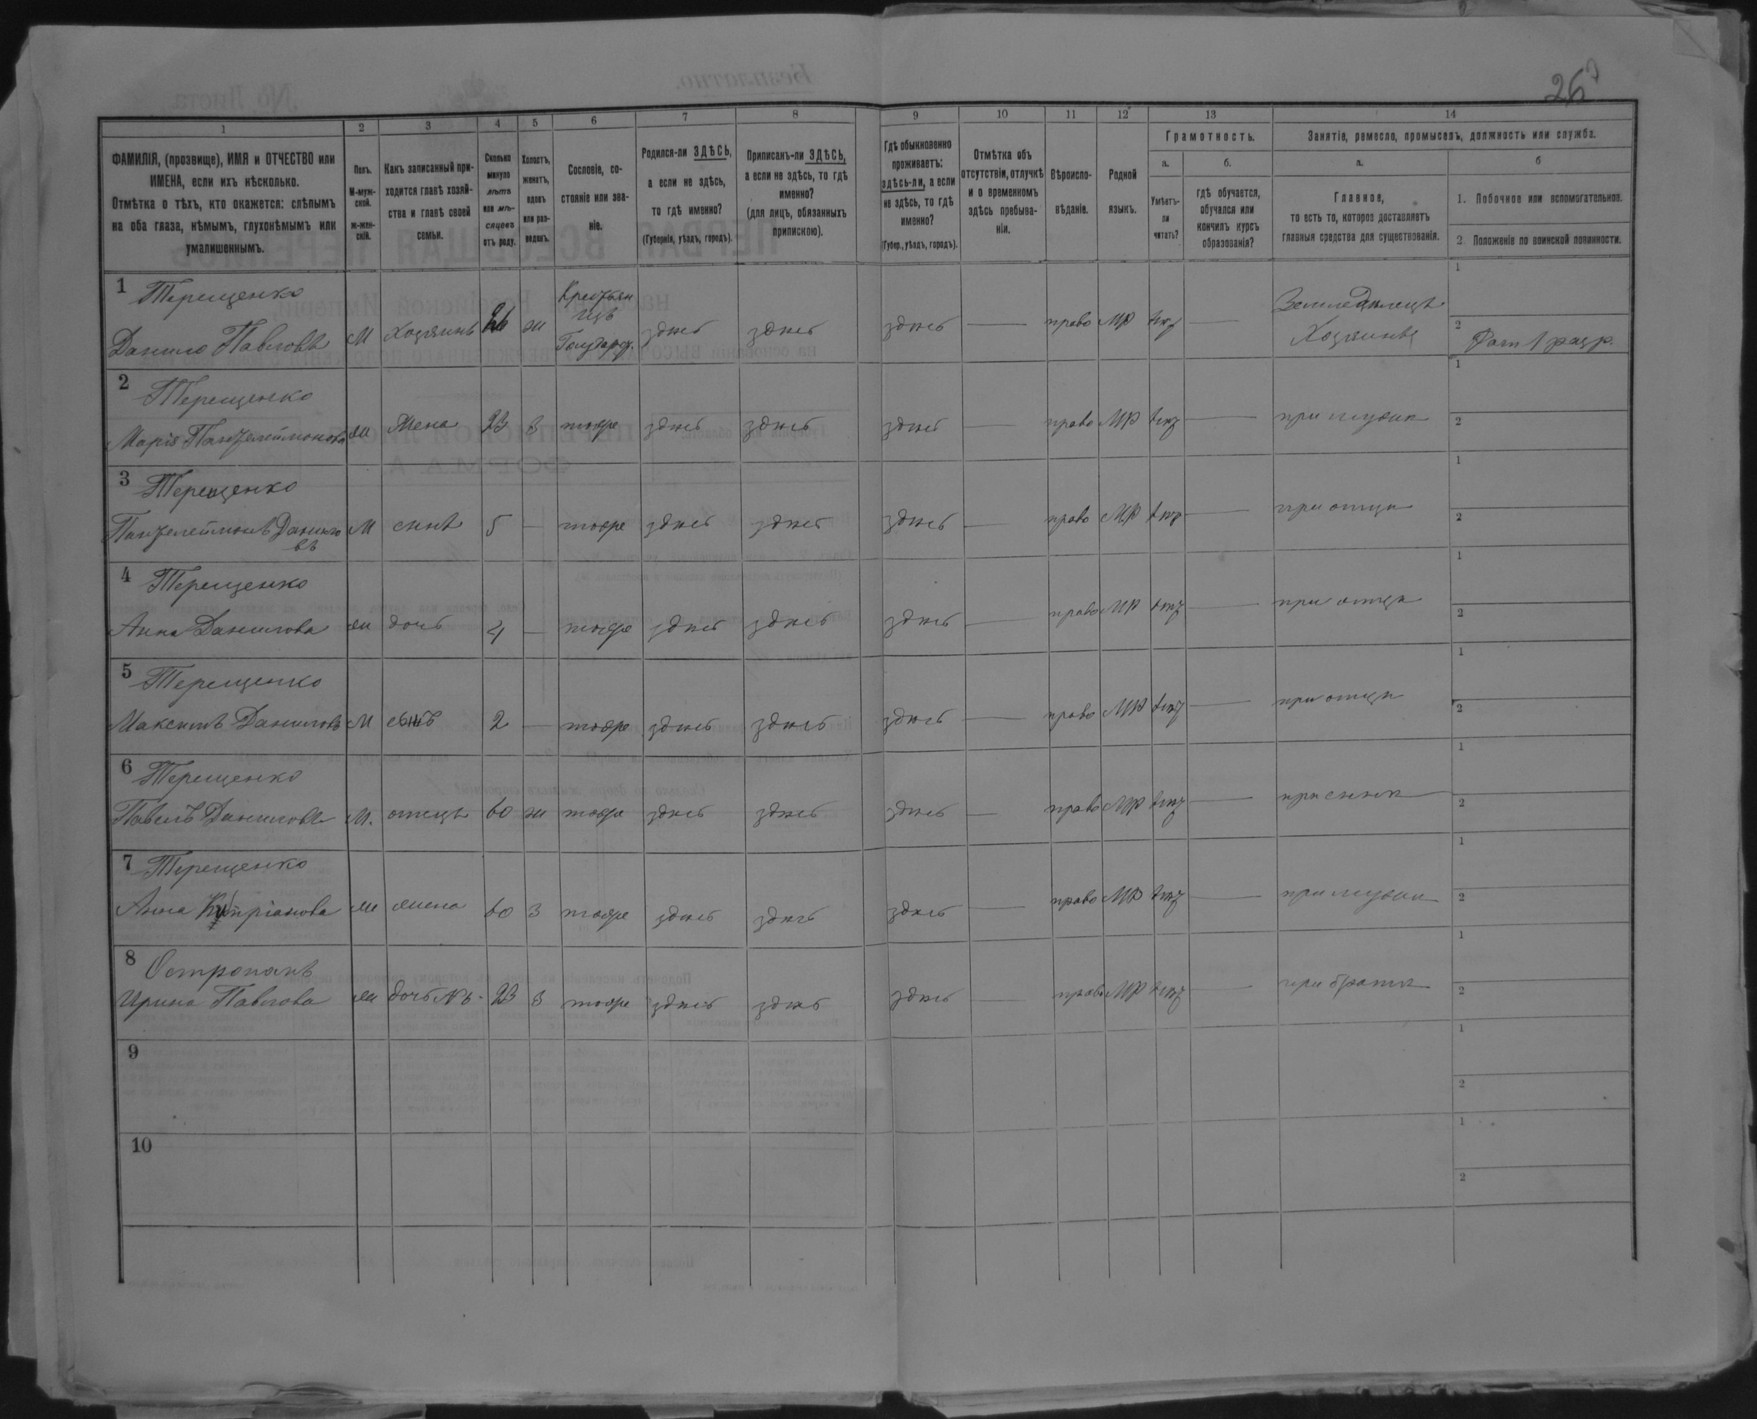 26
1 2 3 4 5 6 7 8 9 10 11 12 13 14
ФАМИЛІЯ, (прозвище), ИМЯ и ОТЧЕСТВО или ИМЕНА, если ихъ нѣсколько.
Отмѣтка о тѣхъ, кто окажется: слѣпымъ на оба глаза, нѣмымъ, глухонѣмымъ или умалишеннымъ.
Полъ.
М-мужской.
Ж-женскій.
Какъ записанный приходится главѣ хозяйства и главѣ своей семьи.
Сколько минуло лѣтъ или мѣсяцевъ отъ роду.
Холостъ, женатъ, вдовъ или разведенъ.
Сословіе, состояніе или званіе.
Родился-ли ЗДѢСЬ, а если не здѣсь, то гдѣ именно?
(Губернія, уѣздъ, городъ).
Приписанъ-ли ЗДѢСЬ, а если не здѣсь, то гдѣ именно?
(для лицъ, обязанныхъ припискою).
Гдѣ обыкновенно проживаетъ: здѣсь-ли, а если не здѣсь, то гдѣ именно?
(Губер., уѣздъ, городъ).
Отмѣтка объ отсутствіи, отлучкѣ и о временномъ здѣсь пребываніи.
Вѣроисповѣданіе.
Родной языкъ.
Грамотность.
а.
Умѣетъ-ли читать?
б.
Гдѣ обучается, обучался или кончилъ курсъ образованія?
Занятіе, ремесло, промыселъ, должность или служба.
а.
Главное,
то есть то, которое доставляетъ главныя средства для существованія.
б
1. Побочное или вспомогательное.
2. Положеніе по воинской повинности.
1 Терещенко
Данило Павловъ М хозяинъ 26 ж Крестьянинъ здѣсь здѣсь здѣсь — право МР нѣт — Земледѣлецъ Хозяинъ 1 2
2 Терещенко
Марія Пантелеймонова ж жена 23 з тоже здѣсь здѣсь здѣсь — право МР нѣт — при мужѣ 1 2
3 Терещенко
Пантелеймонъ Даниловъ М сынъ 5 — тоже здѣсь здѣсь здѣсь — право МР нѣт — при отцѣ 1 2
4 Терещенко
Анна Данилова ж дочь 4 — тоже здѣсь здѣсь здѣсь — право МР нѣт — при отцѣ 1 2
5 Терещенко
Максимъ Даниловъ М сынъ 2 — тоже здѣсь здѣсь здѣсь — право МР нѣт — при отцѣ 1 2
6 Терещенко
Павелъ Даниловъ М. отецъ 60 ж тоже здѣсь здѣсь здѣсь — право МР нѣт — при сынѣ 1 2
7 Терещенко
Анна Купріанова ж жена 60 з тоже здѣсь здѣсь здѣсь — право МР нѣт — при мужѣ 1 2
8 Остропакъ
Ирина Павлова ж дочь 23 з тоже здѣсь здѣсь здѣсь — право МР нѣт — при братѣ 1 2
9 1 2
10 1 2